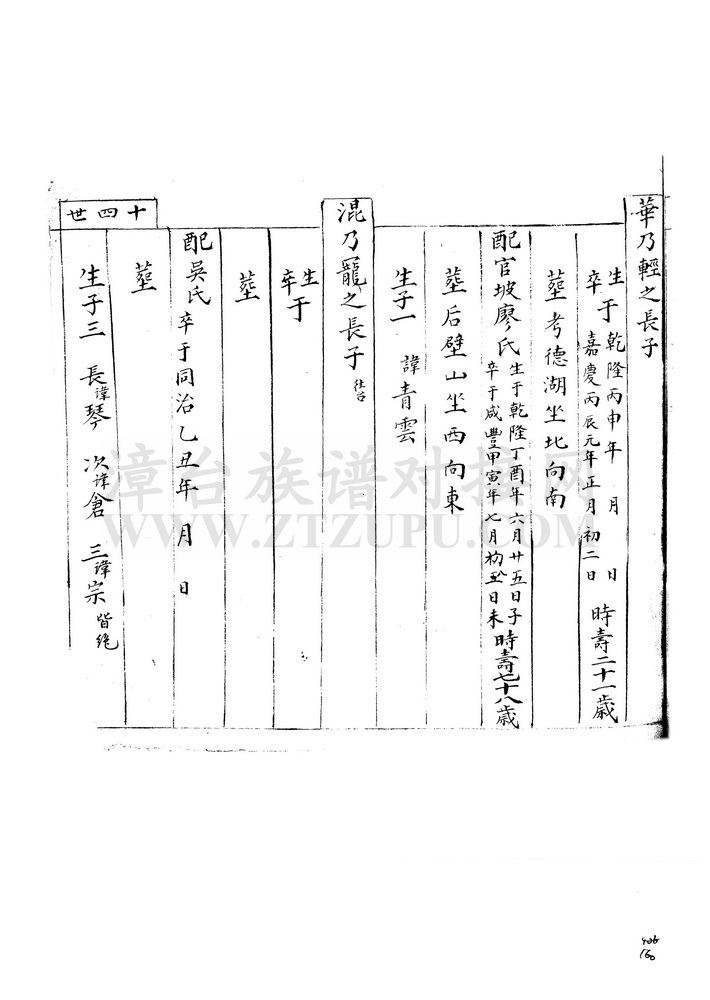 華乃輕之長子
生于乾隆丙申年 月 日
卒于嘉慶丙辰元年正月初二日 時壽二十一歲
塟考德湖坐北向南
配官坡廖氏 生于乾隆丁酉年六月廿五日子
卒于咸豐甲寅年七月初 日未時壽七十八歲
塟后壁山坐西向東
生子一 諱青雲
混乃寵之長子 往台
生于
卒
塟
配吳氏 卒于同治乙丑年 月 日
塟
生子三 長諱琴 次諱倉 三諱宗 皆絶
十四世
漳台族谱对接网
WWW.ZTZUPU.COM
406
160